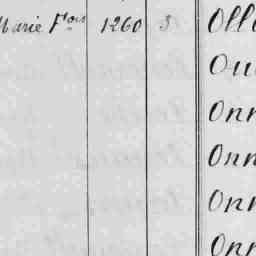 Marie Fçois 1260 3
Oll
Ou
Onn
Onn
Onn
Onn